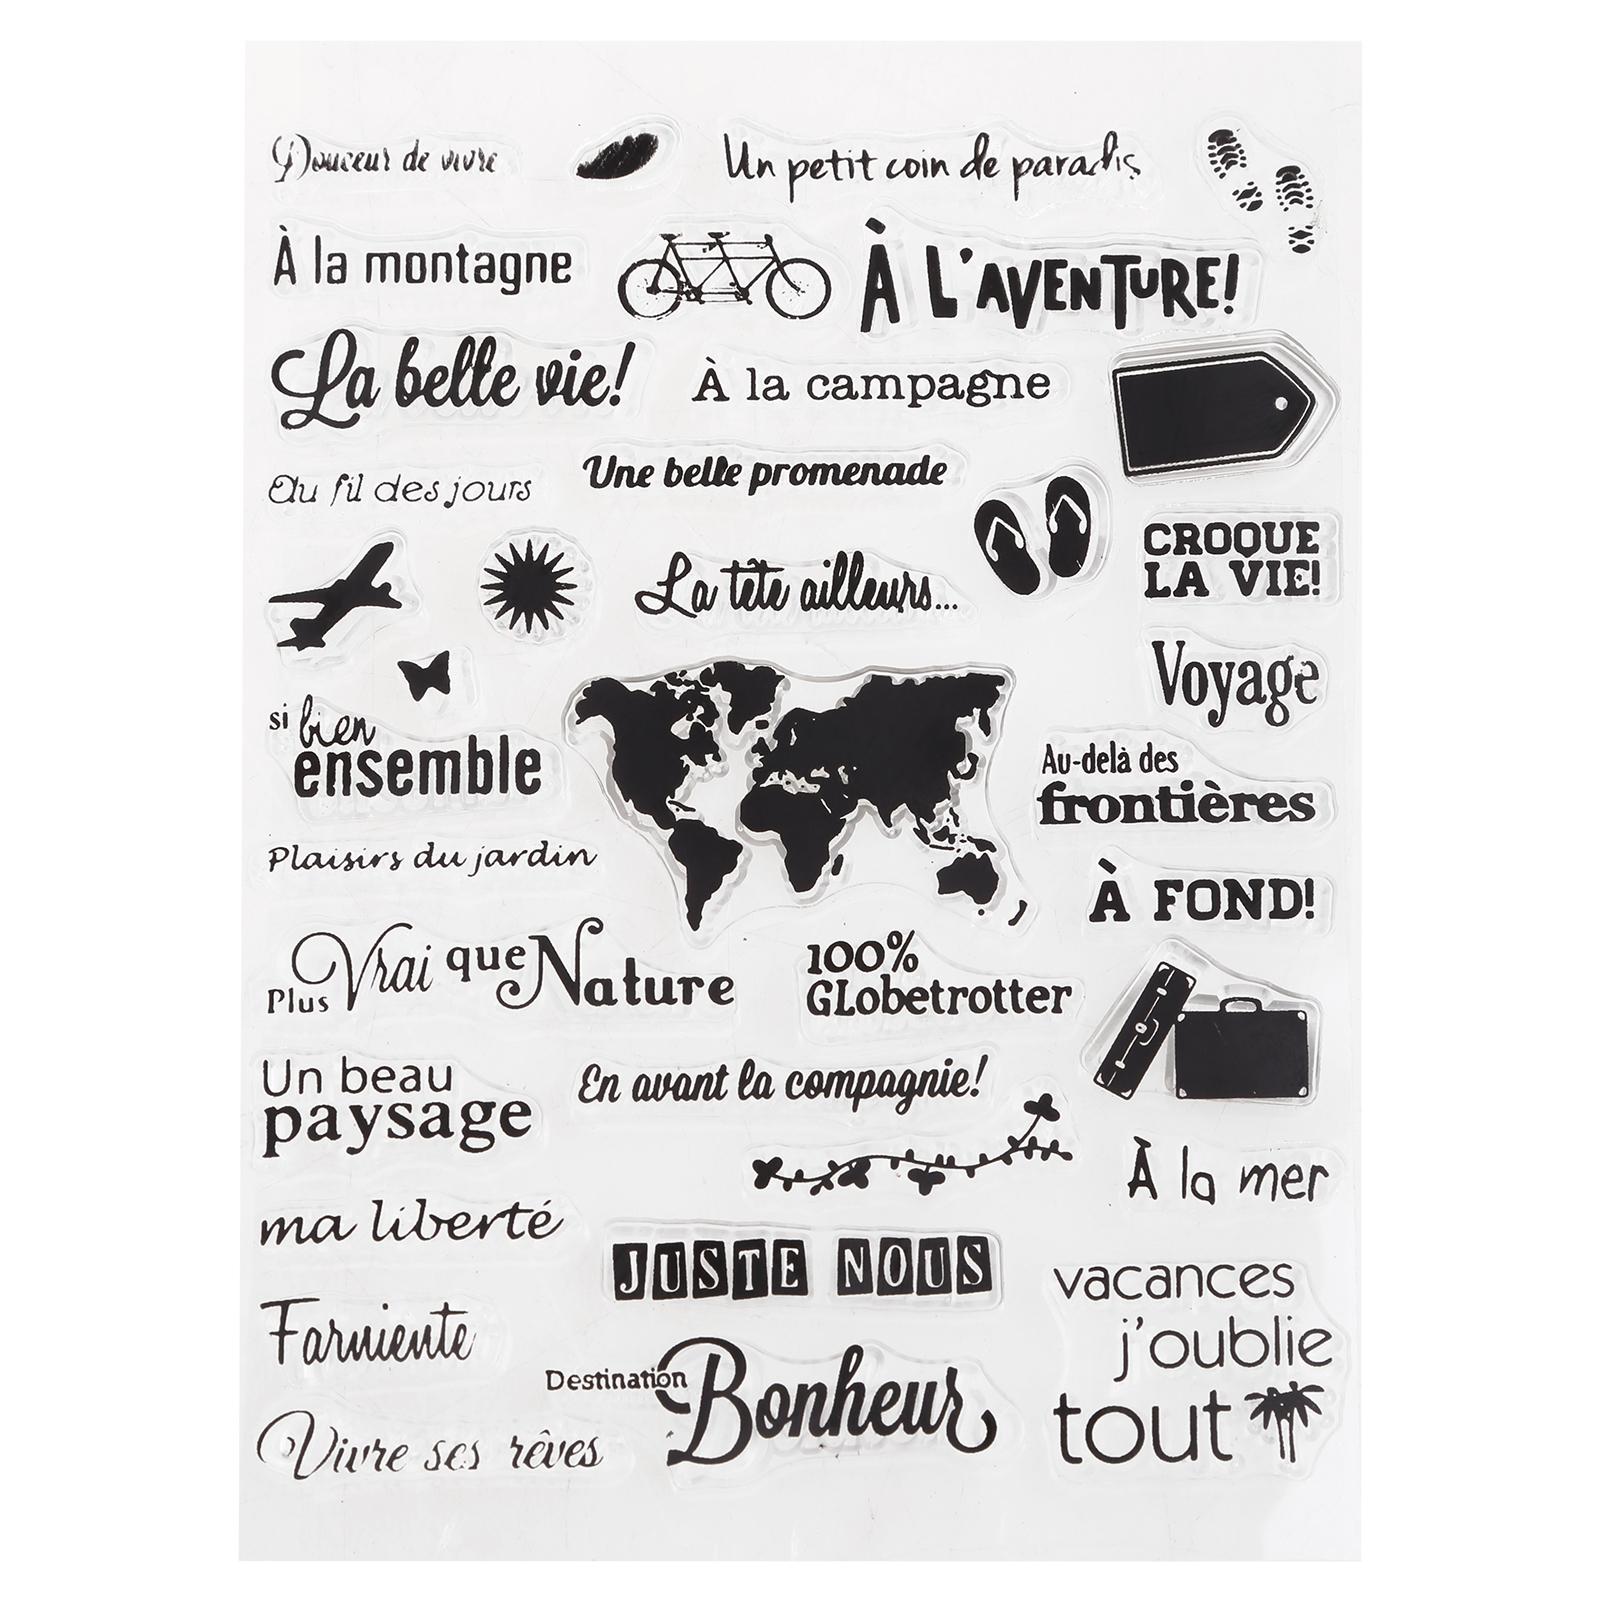 Douceur de vivre
Un petit coin de paradis
À la montagne
À L'AVENTURE!
La belle vie!
À la campagne
Au fil des jours
Une belle promenade
La tête ailleurs...
CROQUE
LA VIE!
Voyage
si bien
ensemble
Au-delà des
frontières
Plaisirs du jardin
À FOND!
Plus Vrai que Nature
100%
GLobetrotter
Un beau
paysage
En avant la compagnie!
À la mer
ma liberté
JUSTE NOUS
vacances
j'oublie
tout
Farniente
Destination
Bonheur
Vivre ses rêves